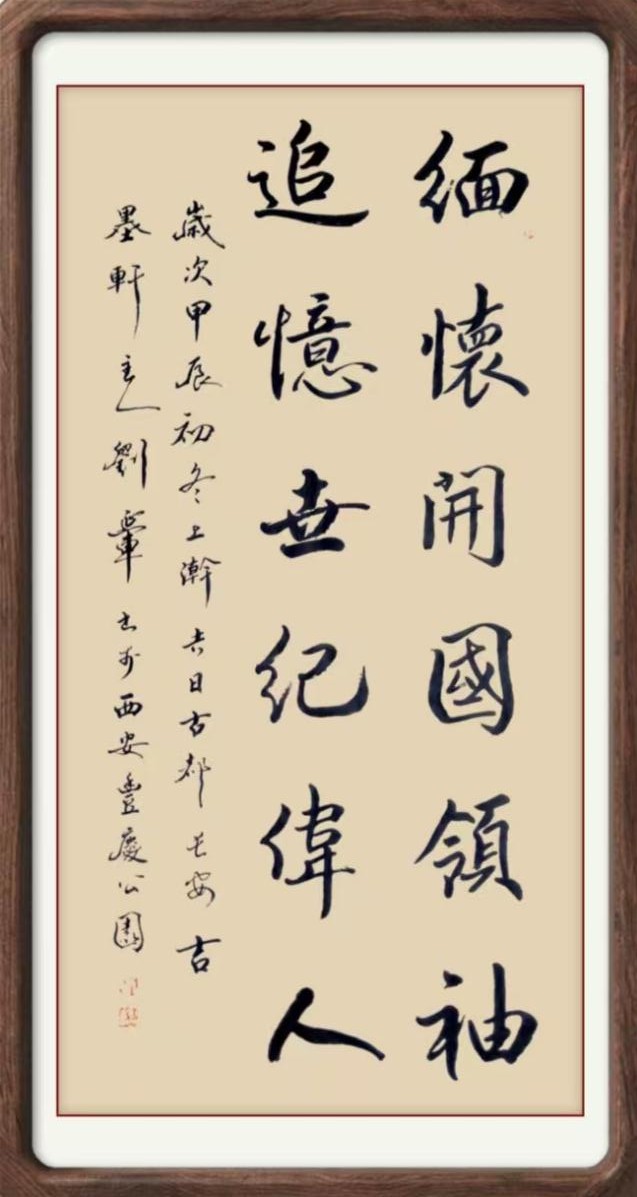 緬懷開國領袖
追憶世紀偉人
歲次甲辰初冬上澣吉日古都長安吉
墨軒主人劉輩書於西安豐慶公園